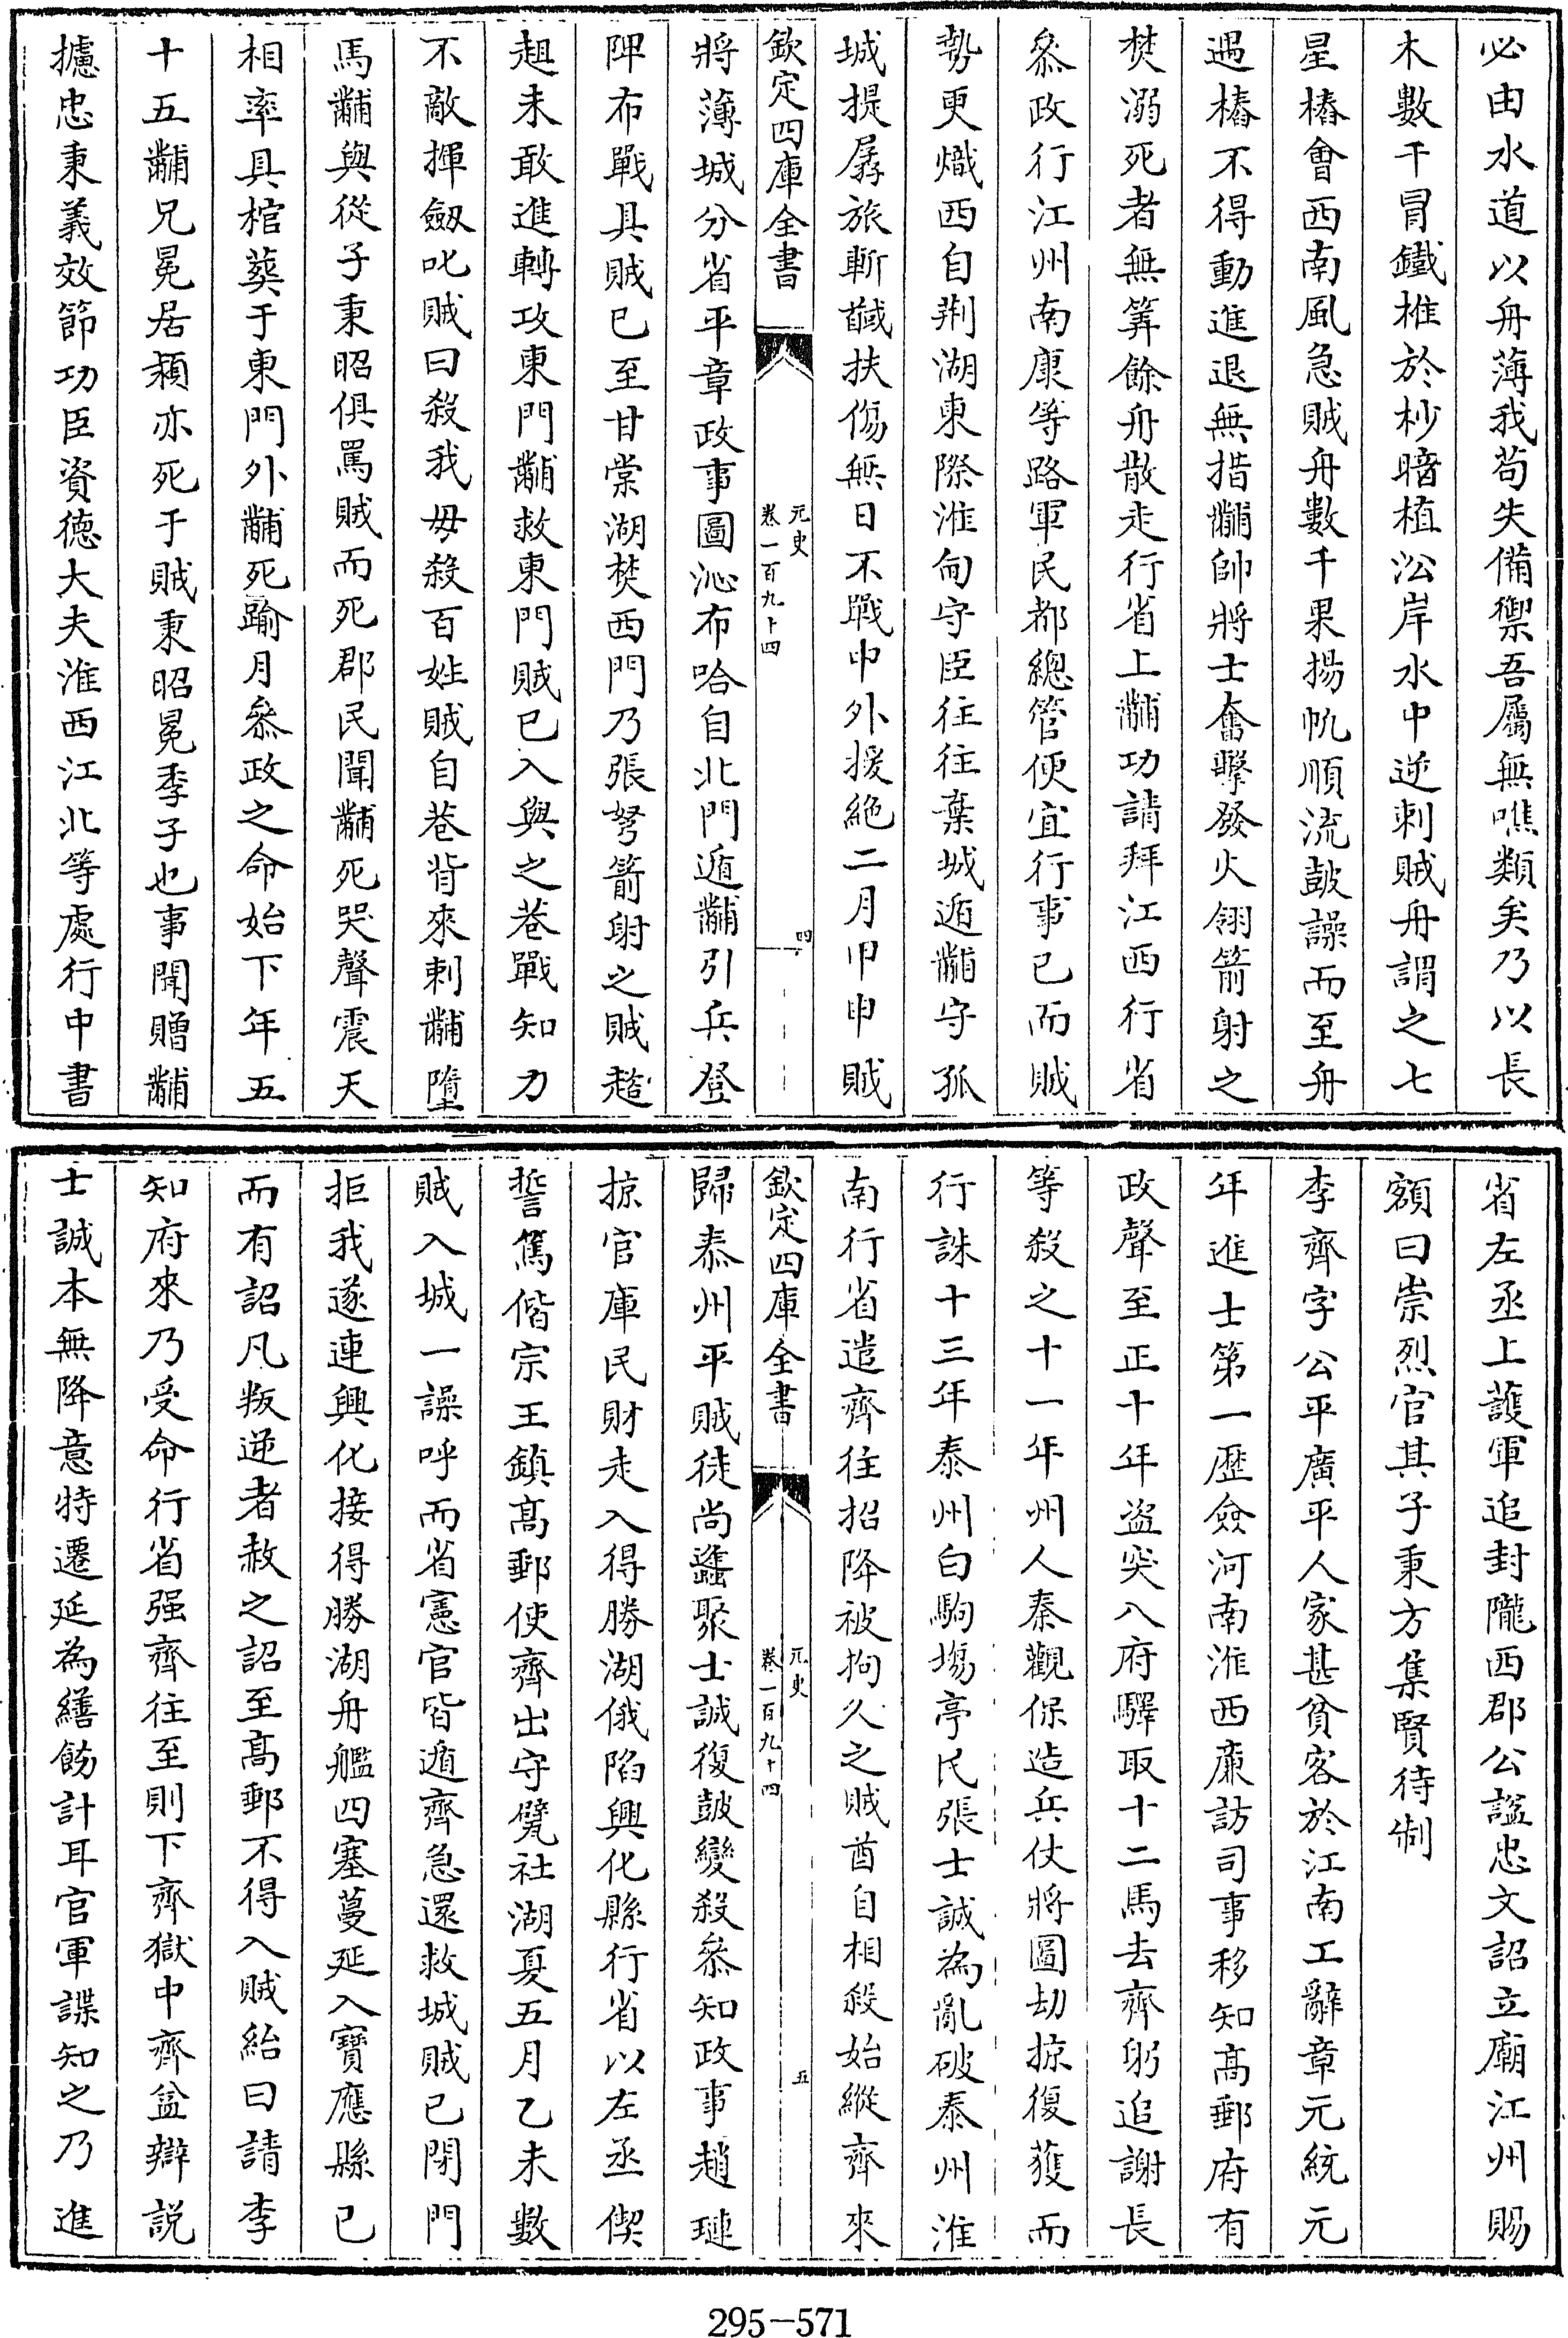 必由水道以舟薄我苟失備禦吾屬無噍類矣乃以長
木數千冒鐵椎於杪暗植㳂岸水中逆刺賊舟謂之七
星樁會西南風急賊舟數千果揚帆順流鼓譟而至舟
遇樁不得動進退無措黼帥將士奮擊發火翎箭射之
焚溺死者無筭餘舟散走行省上黼功請拜江西行省
叅政行江州南康等路軍民都總管便宜行事已而賊
勢更熾西自荆湖東際淮甸守臣往往棄城遁黼守孤
城提孱旅斬馘扶傷無日不戰中外援絶二月甲申賊
欽定四庫全書
元史
卷一百九十四
四
將薄城分省平章政事圖沁布哈自北門遁黼引兵登
陴布戰具賊已至甘棠湖焚西門乃張弩箭射之賊趑
趄未敢進轉攻東門黼救東門賊已入與之巷戰知力
不敵揮劔叱賊曰殺我毋殺百姓賊自巷背來刺黼墮
馬黼與從子秉昭俱罵賊而死郡民聞黼死哭聲震天
相率具棺葬于東門外黼死踰月叅政之命始下年五
十五黼兄冕居潁亦死于賊秉昭冕季子也事聞贈黼
攄忠秉義效節功臣資德大夫淮西江北等處行中書
省左丞上護軍追封隴西郡公諡忠文詔立廟江州賜
額曰崇烈官其子秉方集賢待制
李齊字公平廣平人家甚貧客於江南工辭章元統元
年進士第一歷僉河南淮西亷訪司事移知高郵府有
政聲至正十年盗突入府驛取十二馬去齊躬追謝長
等殺之十一年州人秦觀保造兵仗將圖刼掠復獲而
行誅十三年泰州白駒塲亭民張士誠為亂破泰州淮
南行省遣齊往招降被拘久之賊酋自相殺始縱齊來
欽定四庫全書
元史
卷一百九十四
五
歸泰州平賊徒尚蠭聚士誠復鼓變殺叅知政事趙璉
掠官庫民財走入得勝湖俄陷興化縣行省以左丞偰
誓篤偕宗王鎮高郵使齊出守甓社湖夏五月乙未數
賊入城一譟呼而省憲官皆遁齊急還救城賊已閉門
拒我遂連興化接得勝湖舟艦四塞蔓延入寶應縣已
而有詔凡叛逆者赦之詔至高郵不得入賊紿曰請李
知府來乃受命行省强齊往至則下齊獄中齊益辯説
士誠本無降意特遷延為繕飭計耳官軍諜知之乃進
295-571